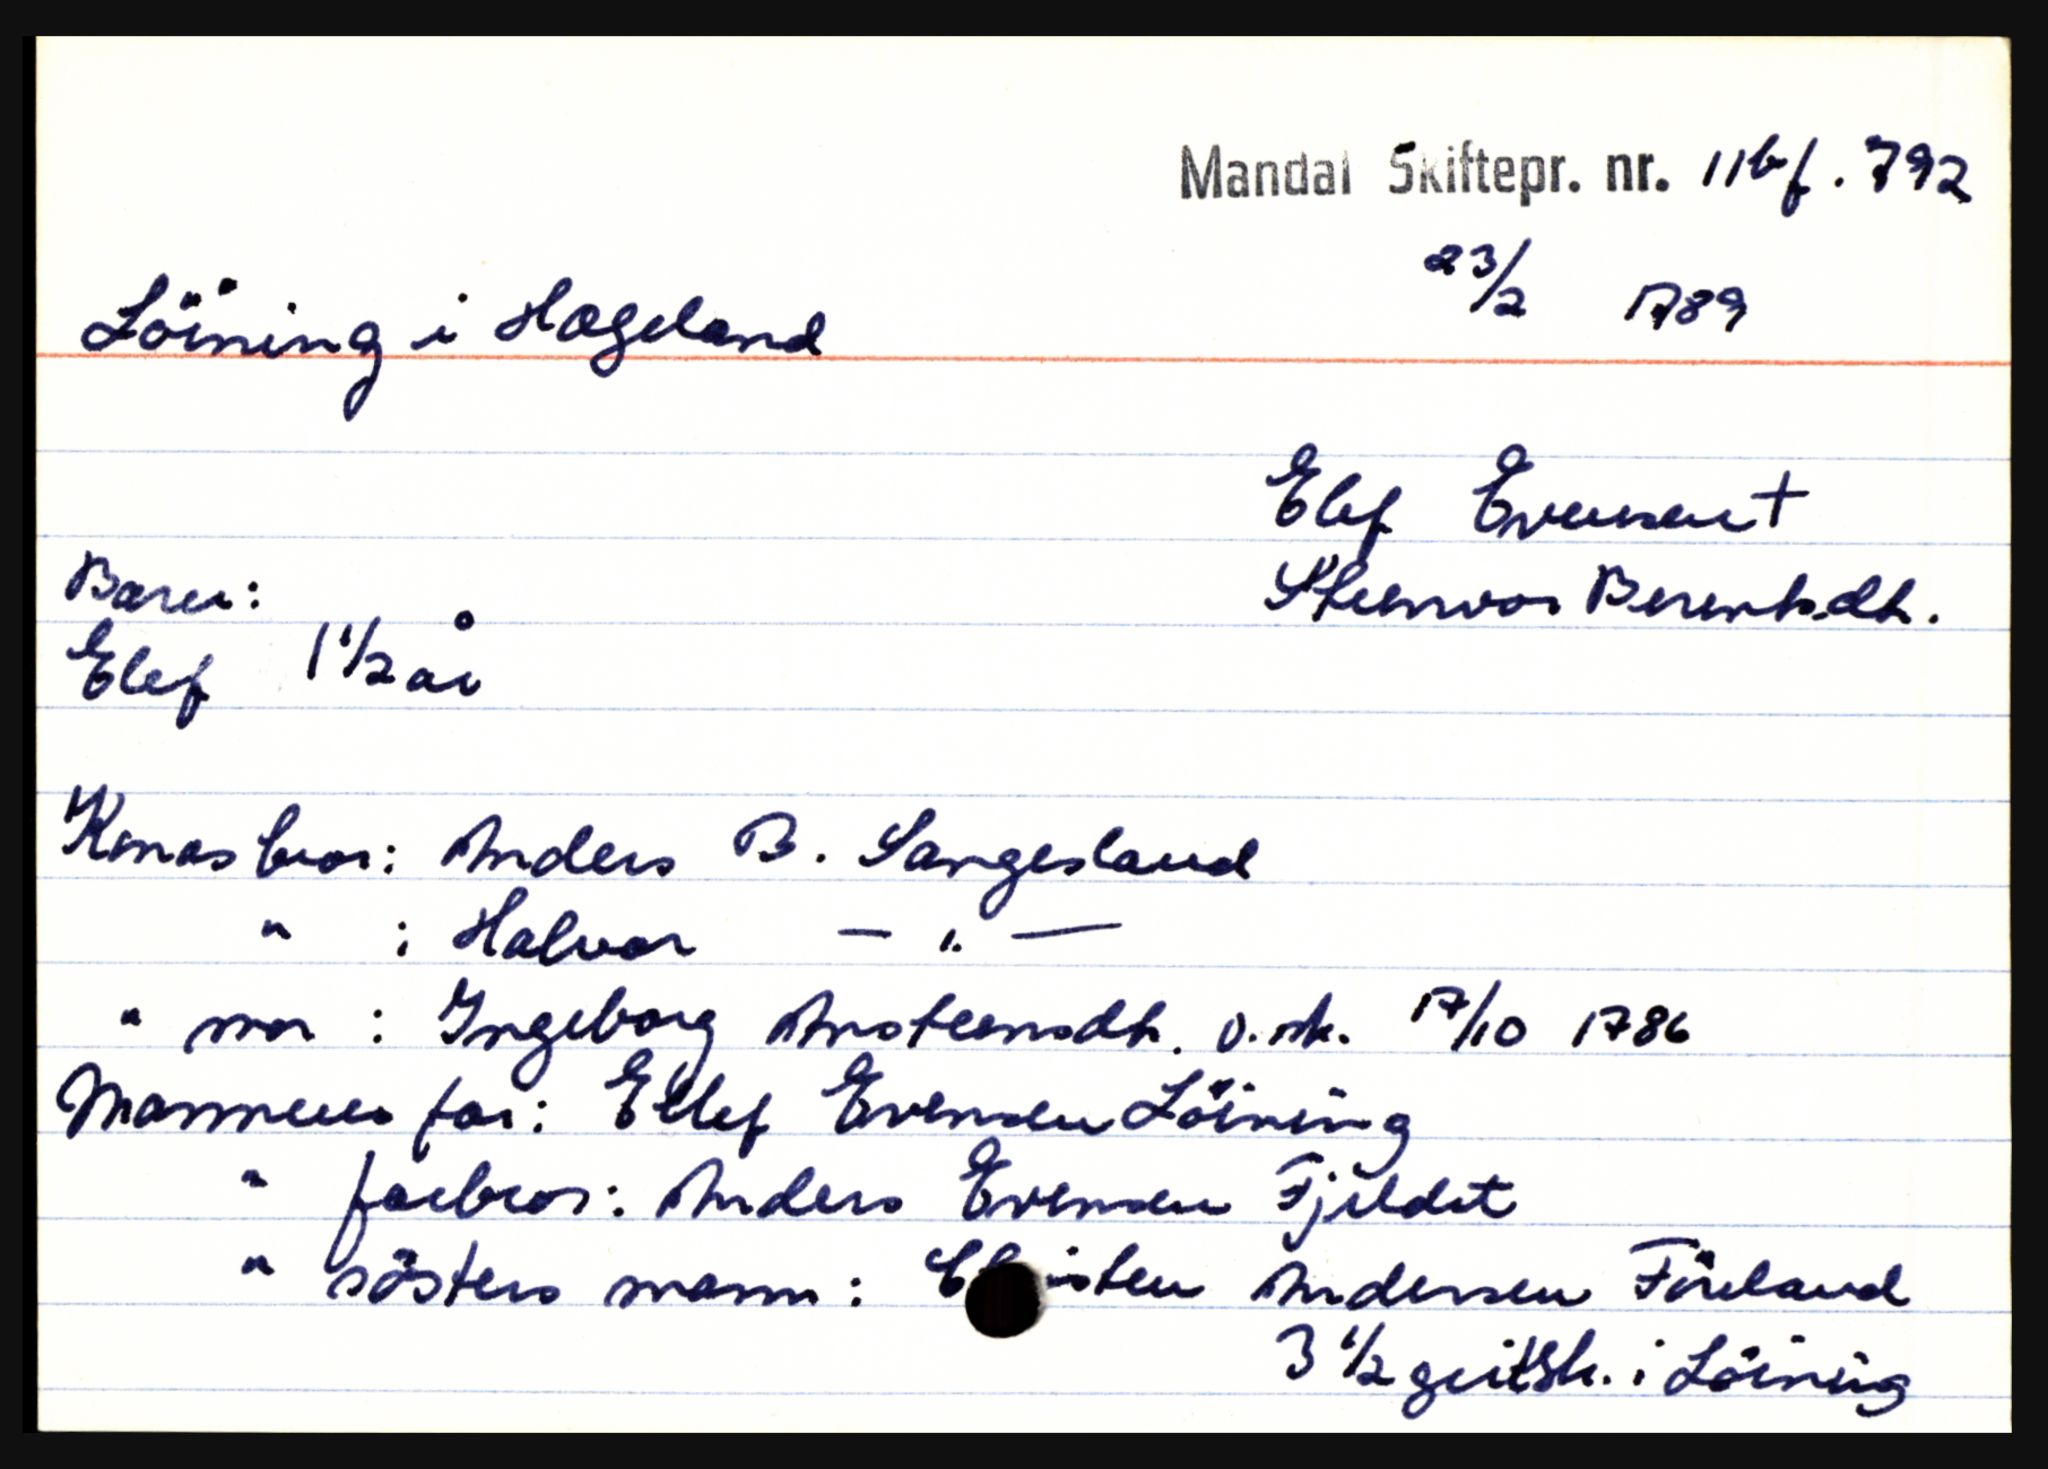 Mandal Skiftepr. nr. 11b f. 792
23/2 1789
Löining i Hægeland
Elef Evensen +
Steenvor Berentsdh.
Barn:
Elef 1 1/2 år
Konas bror: Anders B. Sangesland
" : Halvor — " —
" mor : Ingeborg Ansteensdh. o.sk. 17/10 1786
Mannens far: Ellef Evensen Löining
" farbror: Anders Evensen Fjeldet
" søsters mann: Christen Andersen Föreland
3 1/2 geitsk. i Löining